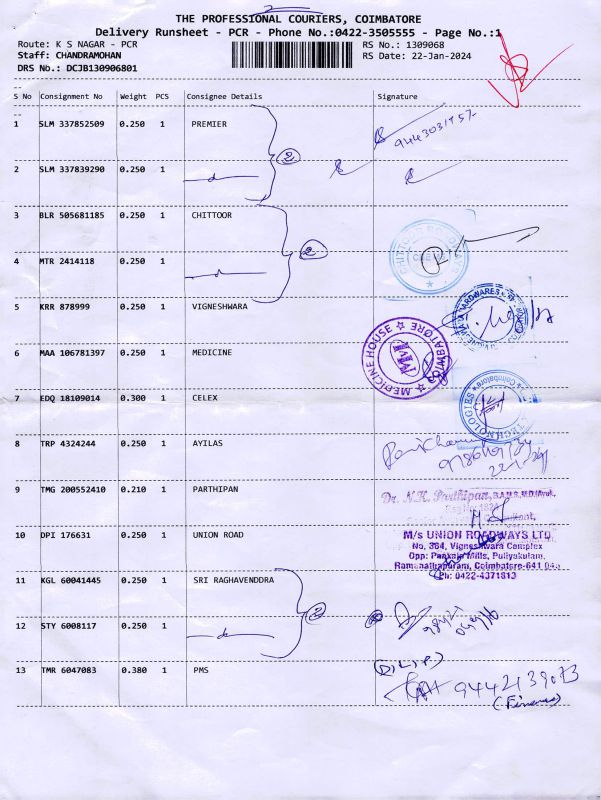 THE PROFESSIONAL COURIERS, COIMBATORE
Delivery Runsheet - PCR - Phone No.:0422-3505555 - Page No.:1
Route: K S NAGAR - PCR RS No.: 1309068
Staff: CHANDRAMOHAN RS Date: 22-Jan-2024
DRS No.: DCJB130906801
S No Consignment No Weight PCS Consignee Details Signature
1 SLM 337852509 0.250 1 PREMIER
2 SLM 337839290 0.250 1
2
3 BLR 505681185 0.250 1 CHITTOOR
4 MTR 2414118 0.250 1
2
CHITTOOR
5 KRR 878999 0.250 1 VIGNESHWARA
HARDWARES
6 MAA 106781397 0.250 1 MEDICINE
MEDICINE HOUSE COIMBATORE
7 EDQ 18109014 0.300 1 CELEX
TECHNOLOGIES Coimbatore
8 TRP 4324244 0.250 1 AYILAS
9 TMG 200552410 0.210 1 PARTHIPAN
Dr. N.K. Parthipan, B.A.M.S, M.D.(Ayu).
10 DPI 176631 0.250 1 UNION ROAD
M/s UNION ROADWAYS LTD
No, 384, Vigneshwara Complex
Opp: Pankaja Mills, Puliyakulam,
Ramanathapuram, Coimbatore-641 045
Ph: 0422-4371813
11 KGL 60041445 0.250 1 SRI RAGHAVENDDRA
12 STY 6008117 0.250 1
2
13 TMR 6047083 0.380 1 PMS
9442139073
(Finance)